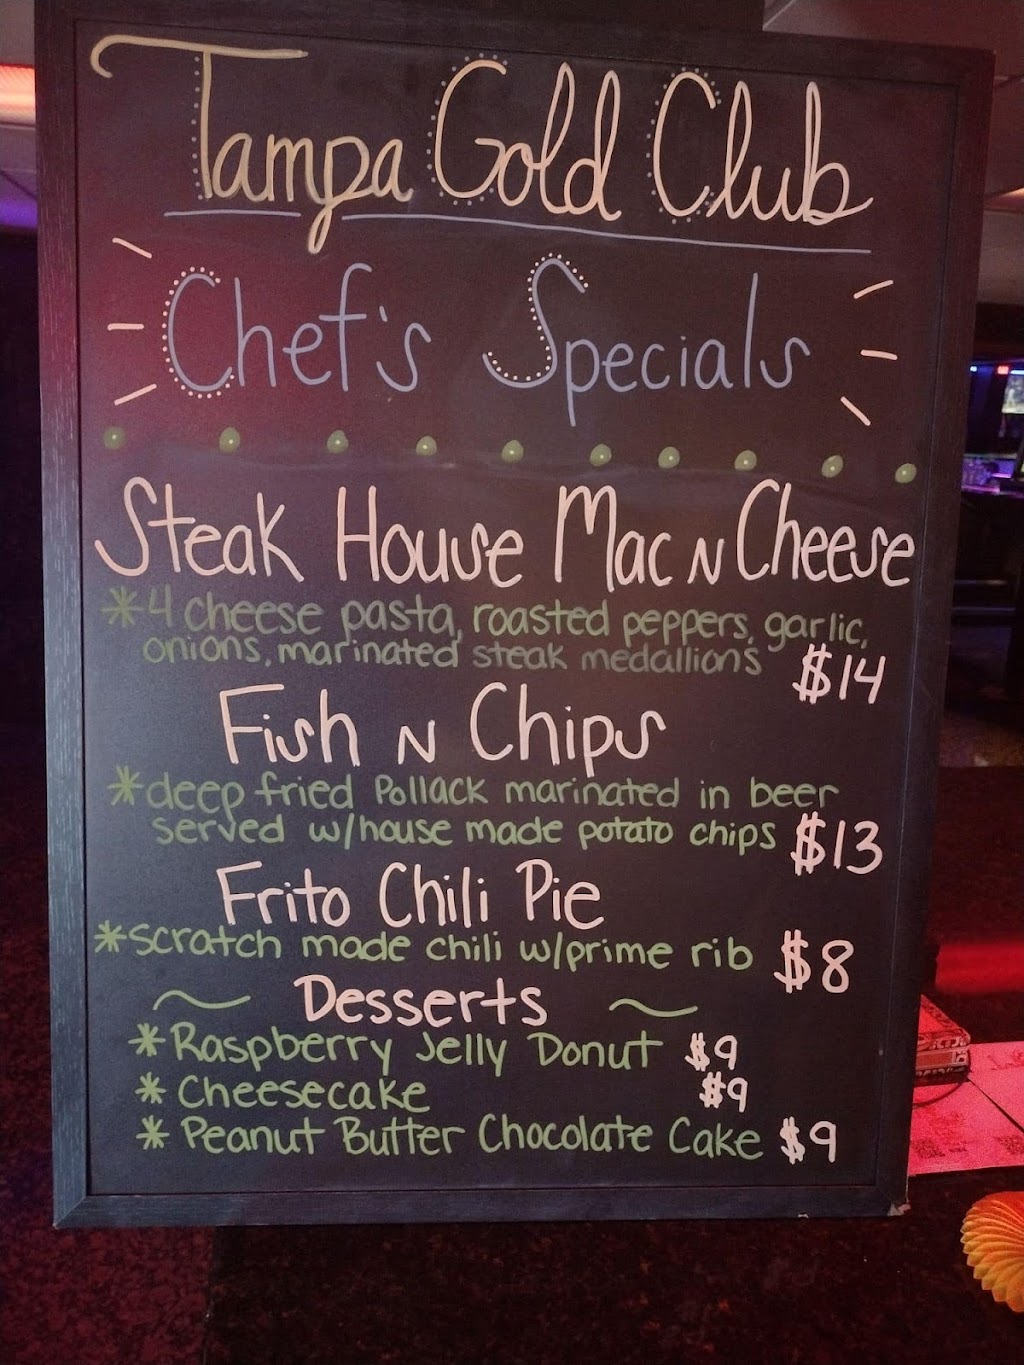 Tampa Gold Club
Chef's Specials
Steak House Mac N Cheese
*4 cheese pasta, roasted peppers, garlic,
onions, marinated steak medallions $14
Fish N Chips
*deep fried Pollack marinated in beer
served w/house made potato chips $13
Frito Chili Pie
*scratch made chili w/prime rib $8
~ Desserts ~
* Raspberry Jelly Donut $9
* Cheesecake $9
* Peanut Butter Chocolate Cake $9